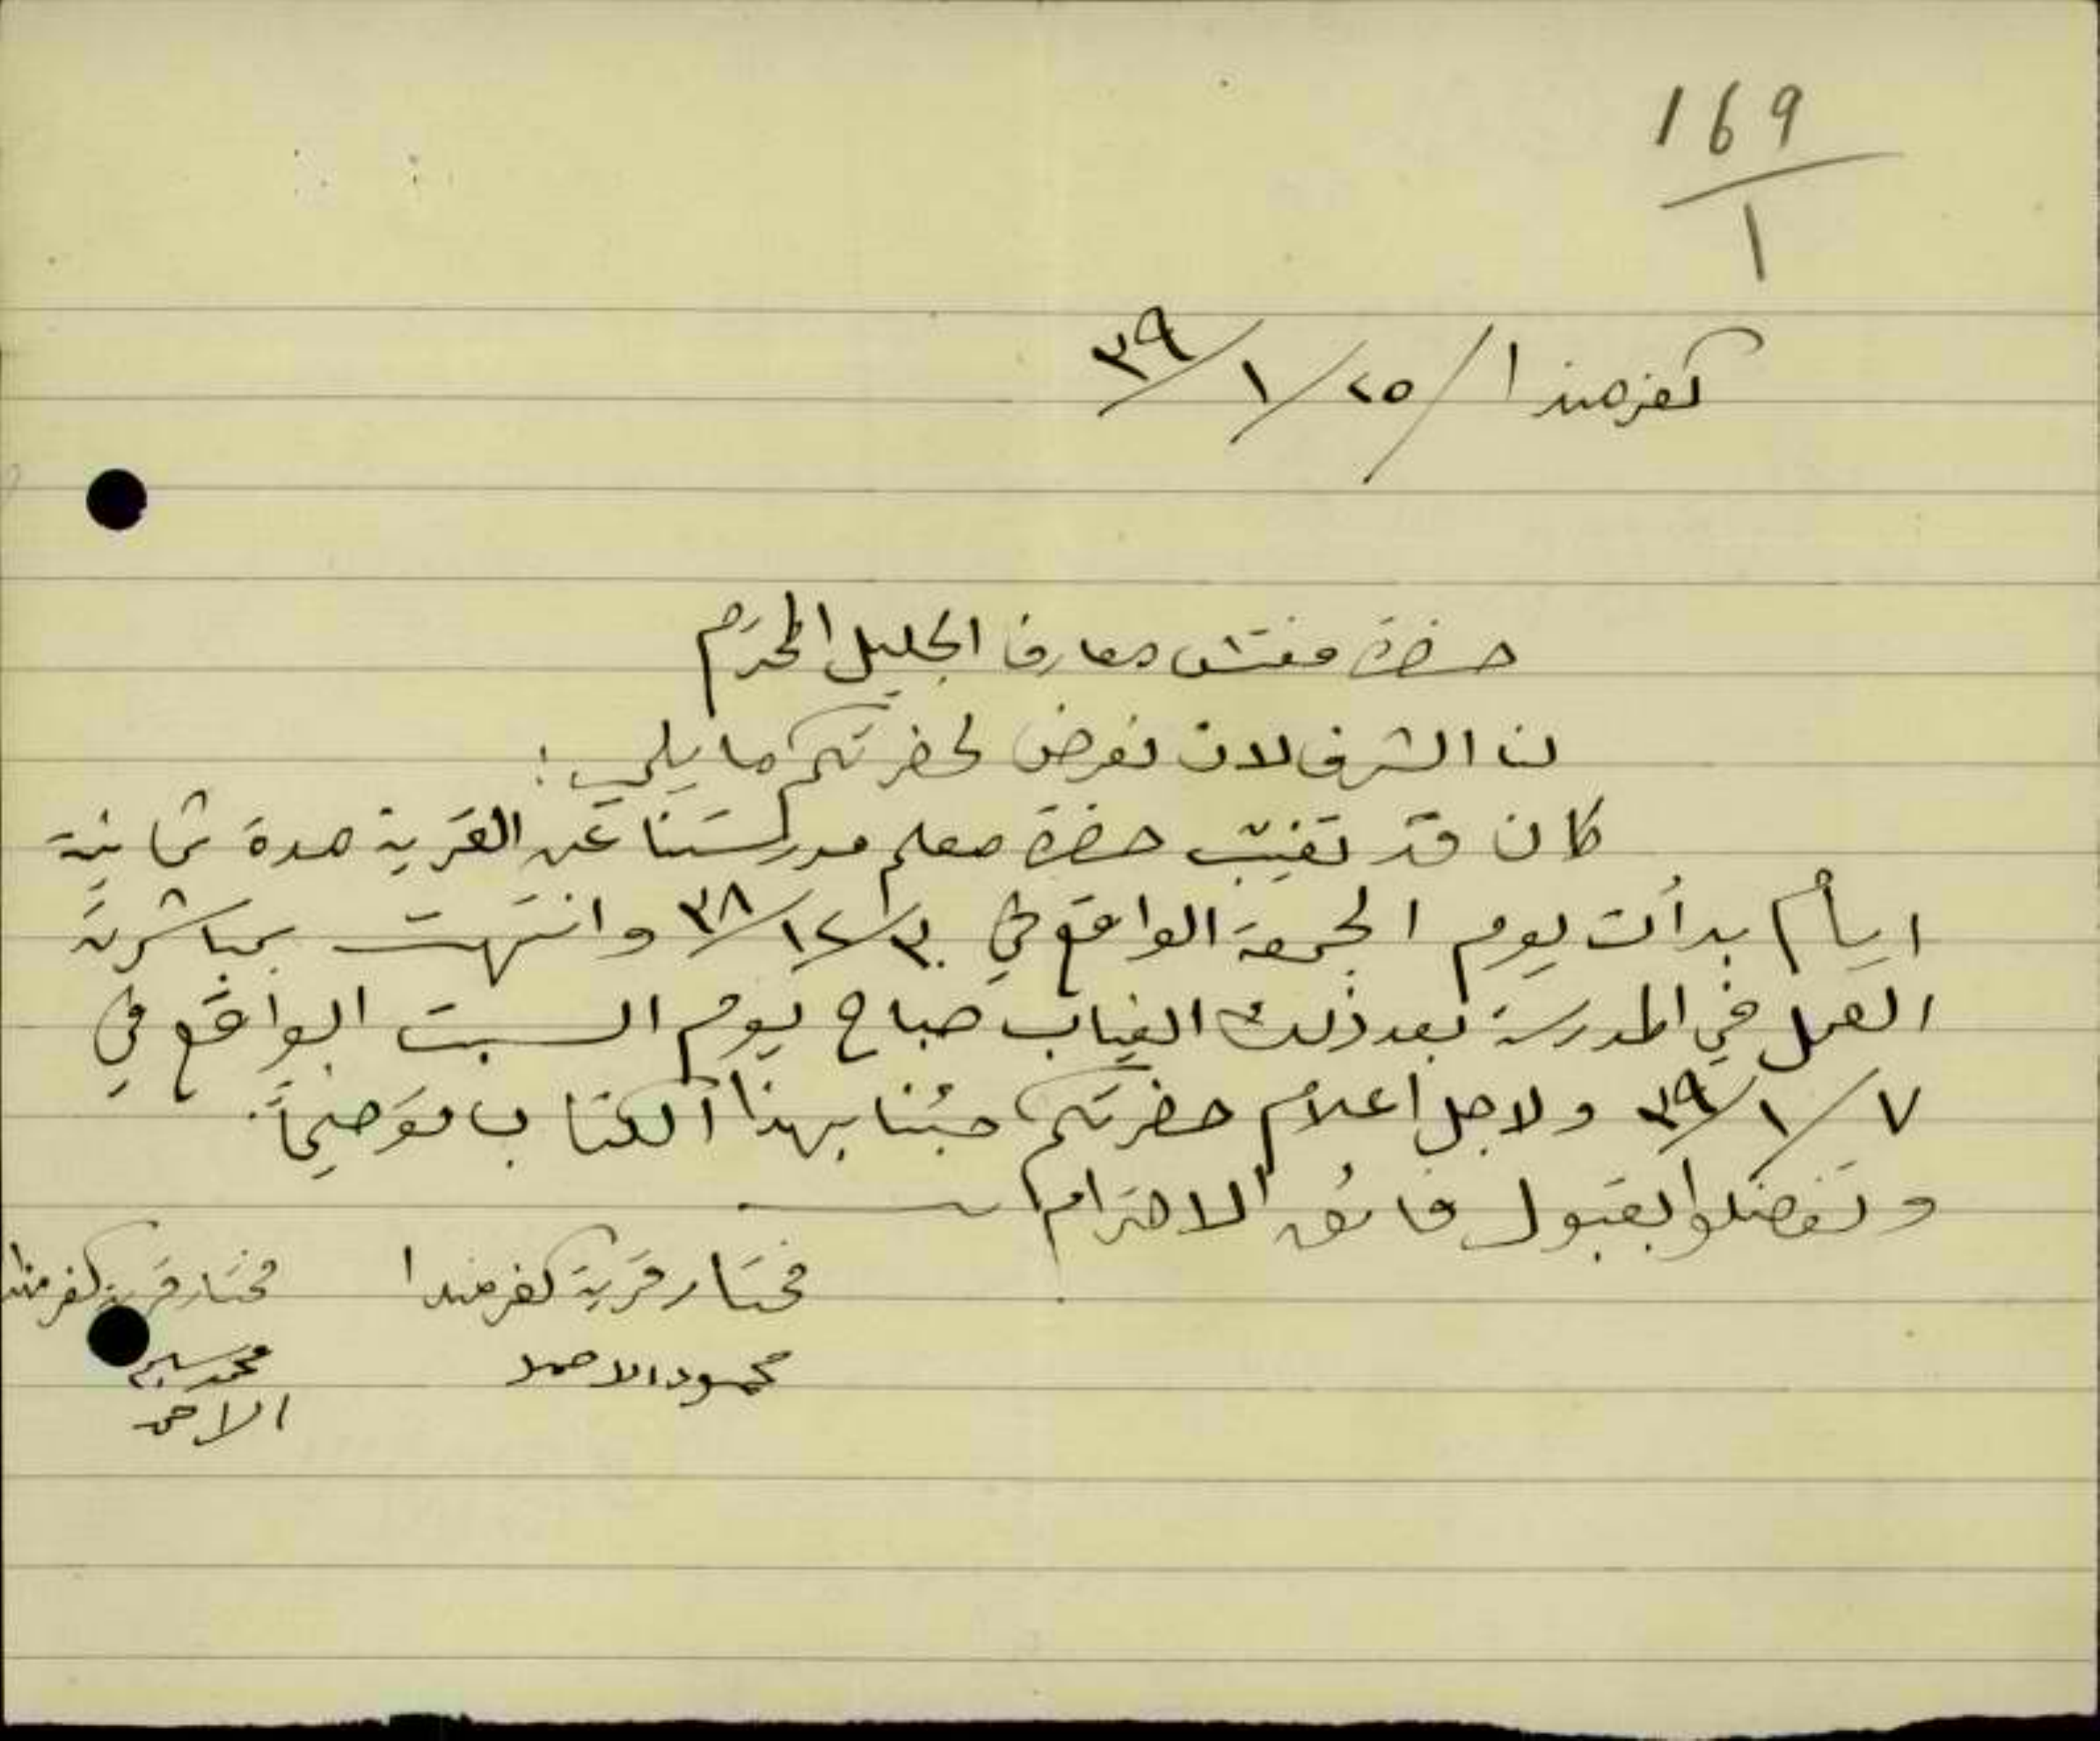 169
1
كفرمندا / ٢٥ / ١ / ٣٩
حضرة مفتش معارف الجليل المحترم
لنا الشرف لان نعرض لحضرتكم ما يلي :
كان قد تغيّب حضرة معلم مدرستنا عن القرية مدة ثمانية
ايام بدأت يوم الجمعة الواقع في ٣٠/١٢/٣٨ وانتهت بمباشرته
العمل في المدرسة بعد ذلك الغياب صباح يوم السبت الواقع في
٧/١/٣٩ ولاجل اعلام حضرتكم جئنا بهذا الكتاب موضحاً.
وتفضلوا بقبول فائق الاحترام
مختار قرية كفرمندا مختار قرية كفرمندا
محمود الاحمد محمد
الاحمد